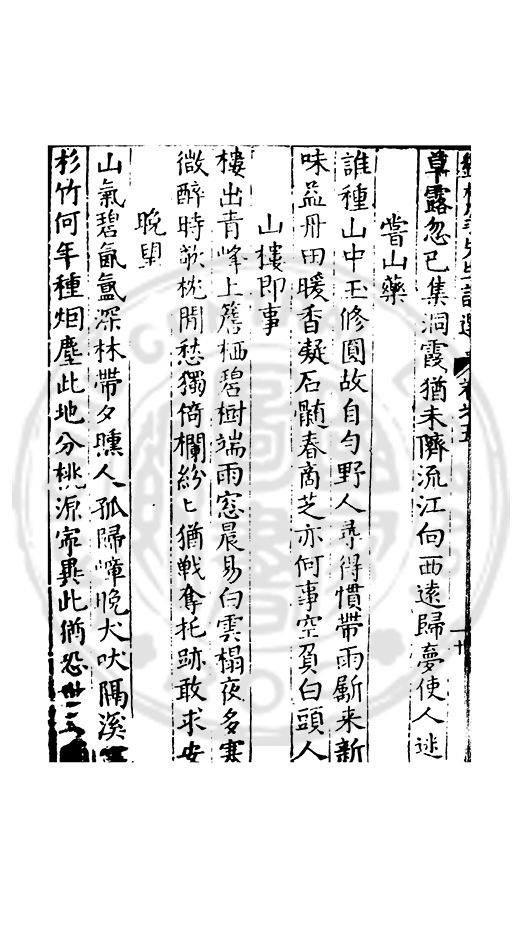 先生詩選 卷之五
草露忽已集洞霞猶未隮流江向西遠歸夢使人迷
嘗山藥
誰種山中玉修圓故自勻野人尋得慣帶雨斸来新
味益丹田暖香凝石髓春商芝亦何事空負白頭人
山樓即事
樓出青峰上簷栖碧樹端雨窓晨易白雲榻夜多寒
微醉時欹枕閒愁獨倚欄紛〻猶戰奪托跡敢求安
晚望
山氣碧氤氳深林帶夕曛人孤歸嶂晚犬吠隔溪
杉竹何年種烟塵此地分桃源寧異此猶恐世